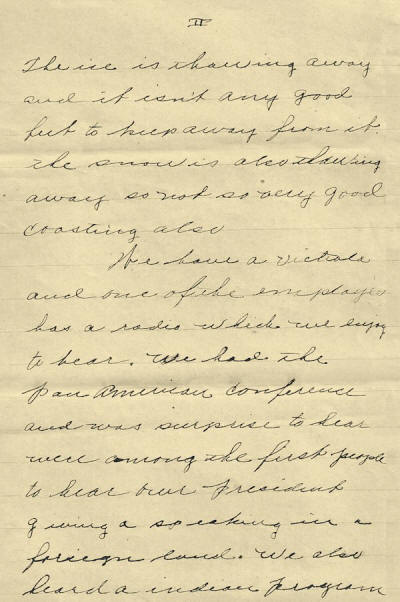 II
The ice is thawing away
and it isn't any good
but to keep away from it.
The snow is also thawing
away so not so very good
coasting also
We have a victrola
and one of the employees
has a radio which we enjoy
to hear. We had the
pan American conference
and was surprise to hear
were among the first people
to hear our president
giving a speaking in a
foreign land. We also
heard a indian program